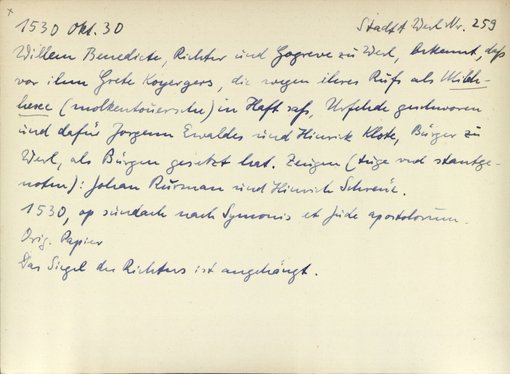 x
1530 Okt. 30 Stadt Werl Nr. 259
Willem Benedicte, Richter und Gogreve zu Werl, bekennt, daß
vor ihm Grete Koyergers, die wegen ihres Rufs als Milch-
hexe (molkentoversche) in Haft saß, Urfehde geschworen
und dafür Jorgenn Ewaldes und Hinrick Kloke, Bürger zu
Werl, als Bürgen gesetzt hat. Zeugen (tuge vnd stantge-
noten): Johan Rurman und Hinrich Schreue.
1530, op sundach nach Symonis et Jude apostolorum.
Orig. Papier
Das Siegel des Richters ist angehängt.